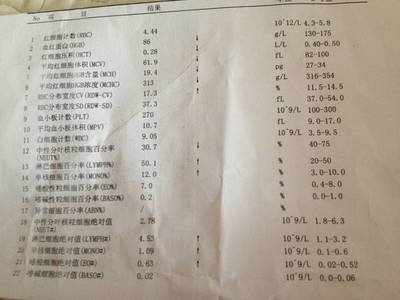 No 项 目 结果
1 红细胞计数(RBC) 4.44 10^12/L 4.3-5.8
2 血红蛋白(HGB) 86 ↓ g/L 130-175
3 红细胞压积(HCT) 0.28 ↓ L/L 0.40-0.50
4 平均红细胞体积(MCV) 61.9 ↓ fL 82-100
5 平均红细胞HGB含量(MCH) 19.4 ↓ pg 27-34
6 平均红细胞HGB浓度(MCHC) 313 ↓ g/L 316-354
7 RBC分布宽度CV(RDW-CV) 17.3 ↑ % 11.5-14.5
8 RBC分布宽度SD(RDW-SD) 37.3 fL 37.0-54.0
9 血小板计数(PLT) 270 10^9/L 100-300
10 平均血小板体积(MPV) 10.7 fL 9.0-17.0
11 白细胞计数(WBC) 9.05 10^9/L 3.5-9.5
12 中性分叶核粒细胞百分率 30.7 ↓ % 40-75
(NEUT%)
13 淋巴细胞百分率(LYMPH%) 50.1 ↑ % 20-50
14 单核细胞百分率(MONO%) 12.0 ↑ % 3.0-10.0
15 嗜酸性粒细胞百分率(EO%) 7.0 % 0.4-8.0
16 嗜碱性粒细胞百分率(BASO%) 0.2 % 0.0-1.0
17 异常细胞百分率(ABN%) %
18 中性分叶核粒细胞绝对值 2.78 10^9/L 1.8-6.3
(NEUT#)
19 淋巴细胞绝对值(LYMPH#) 4.53 ↑ 10^9/L 1.1-3.2
20 单核细胞绝对值(MONO#) 1.09 ↑ 10^9/L 0.1-0.6
21 嗜酸细胞绝对值(EO#) 0.63 ↑ 10^9/L 0.02-0.52
22 嗜碱细胞绝对值(BASO#) 0.02 10^9/L 0.0-0.06